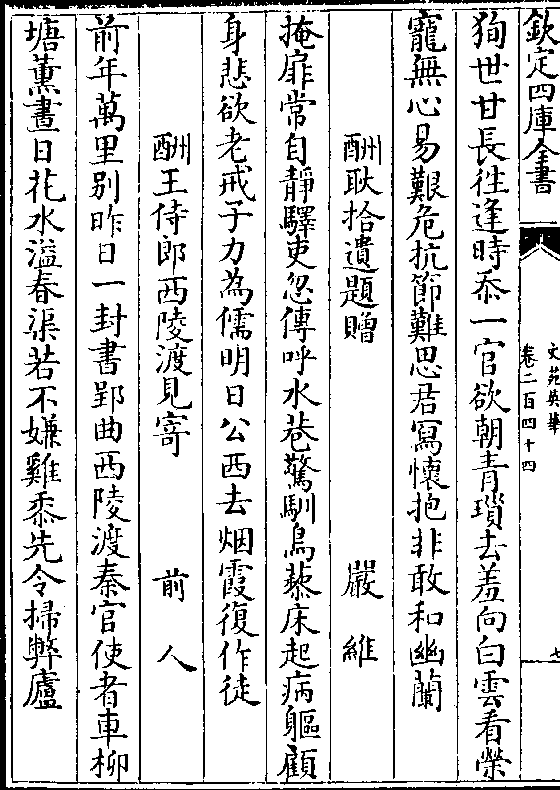 欽定四庫全書
文苑英華
卷二百四十四
七
狥世甘長徃逢時忝一官欲朝青瑣去羞向白雲看榮
寵無心易艱危抗節難思君冩懷抱非敢和幽蘭
酬耿拾遺題贈 嚴維
掩扉常自静驛吏忽傳呼水巷驚馴鳥藜床起病軀顧
身悲欲老戒子力為儒明日公西去烟霞復作徒
酬王侍郎西陵渡見寄 前人
前年萬里别昨日一封書郢曲西陵渡秦官使者車柳
塘薫晝日花水溢春渠若不嫌雞黍先令掃弊廬